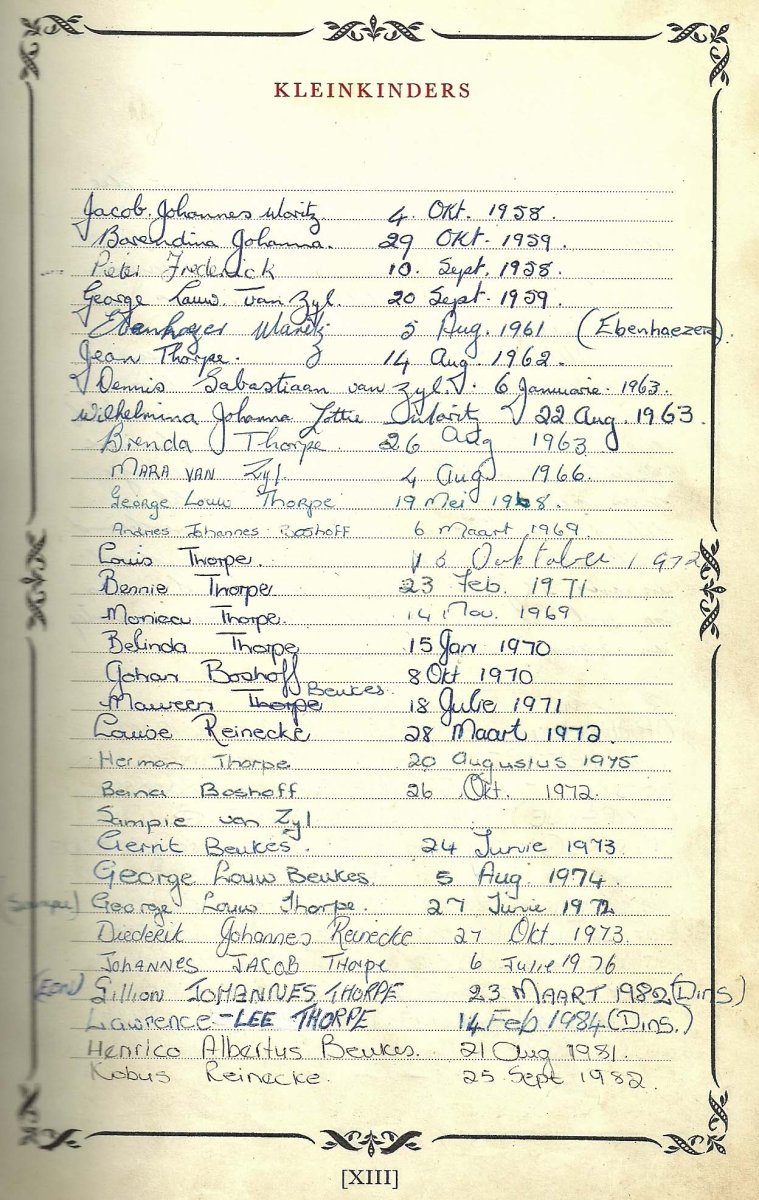 KLEINKINDERS
Jacob Johannes Moritz 4. Okt. 1958.
Barendina Johanna. 29 Okt. 1959.
Pieter Frederick 10. Sept. 1958.
George Louw. Van Zyl. 20 Sept. 1959.
Moritz 5 Aug. 1961 (Ebenhaezere).
Jean Thorpe. 14 Aug. 1962.
Dennis Sabastiaan van Zyl. 6 Januarie. 1963.
Wilhelmina Johanna Lottie 22 Aug. 1963.
Brenda Thorpe 26 Aug 1963
MARA VAN Zyl. 4 Aug 1966.
George Louw Thorpe 19 Mei 1968.
Andries Johannes Boshoff 6 Maart 1969.
Louis Thorpe. 1972
Bennie Thorpe 23 Feb. 1971
Monica Thorpe. 14 Nov. 1969
Belinda Thorpe 15 Jan 1970
Johan Boshoff 8 Okt 1970
Maureen Thorpe Beukes. 18 Julie 1971
Louise Reinecke 28 Maart 1972.
Herman Thorpe 20 Augustus 1975
Boshoff 26 Okt. 1972.
Sampie van Zyl
Gerrit Beukes. 24 Junie 1973
George Louw Beukes. 5 Aug. 1974.
George Louw Thorpe. 27 Junie 1972
Diederik Johannes Reinecke 27 Okt 1973.
JOHANNES JACOB Thorpe 6 Julie 1976
(EON) Gillion JOHANNES THORPE 23 MAART 1982 (Dins)
Lawrence-LEE THORPE 14 Feb 1984 (Dins.)
Henrico Albertus Beukes. 21 Aug 1981.
Kobus Reinecke. 25 Sept 1982.
[XIII]